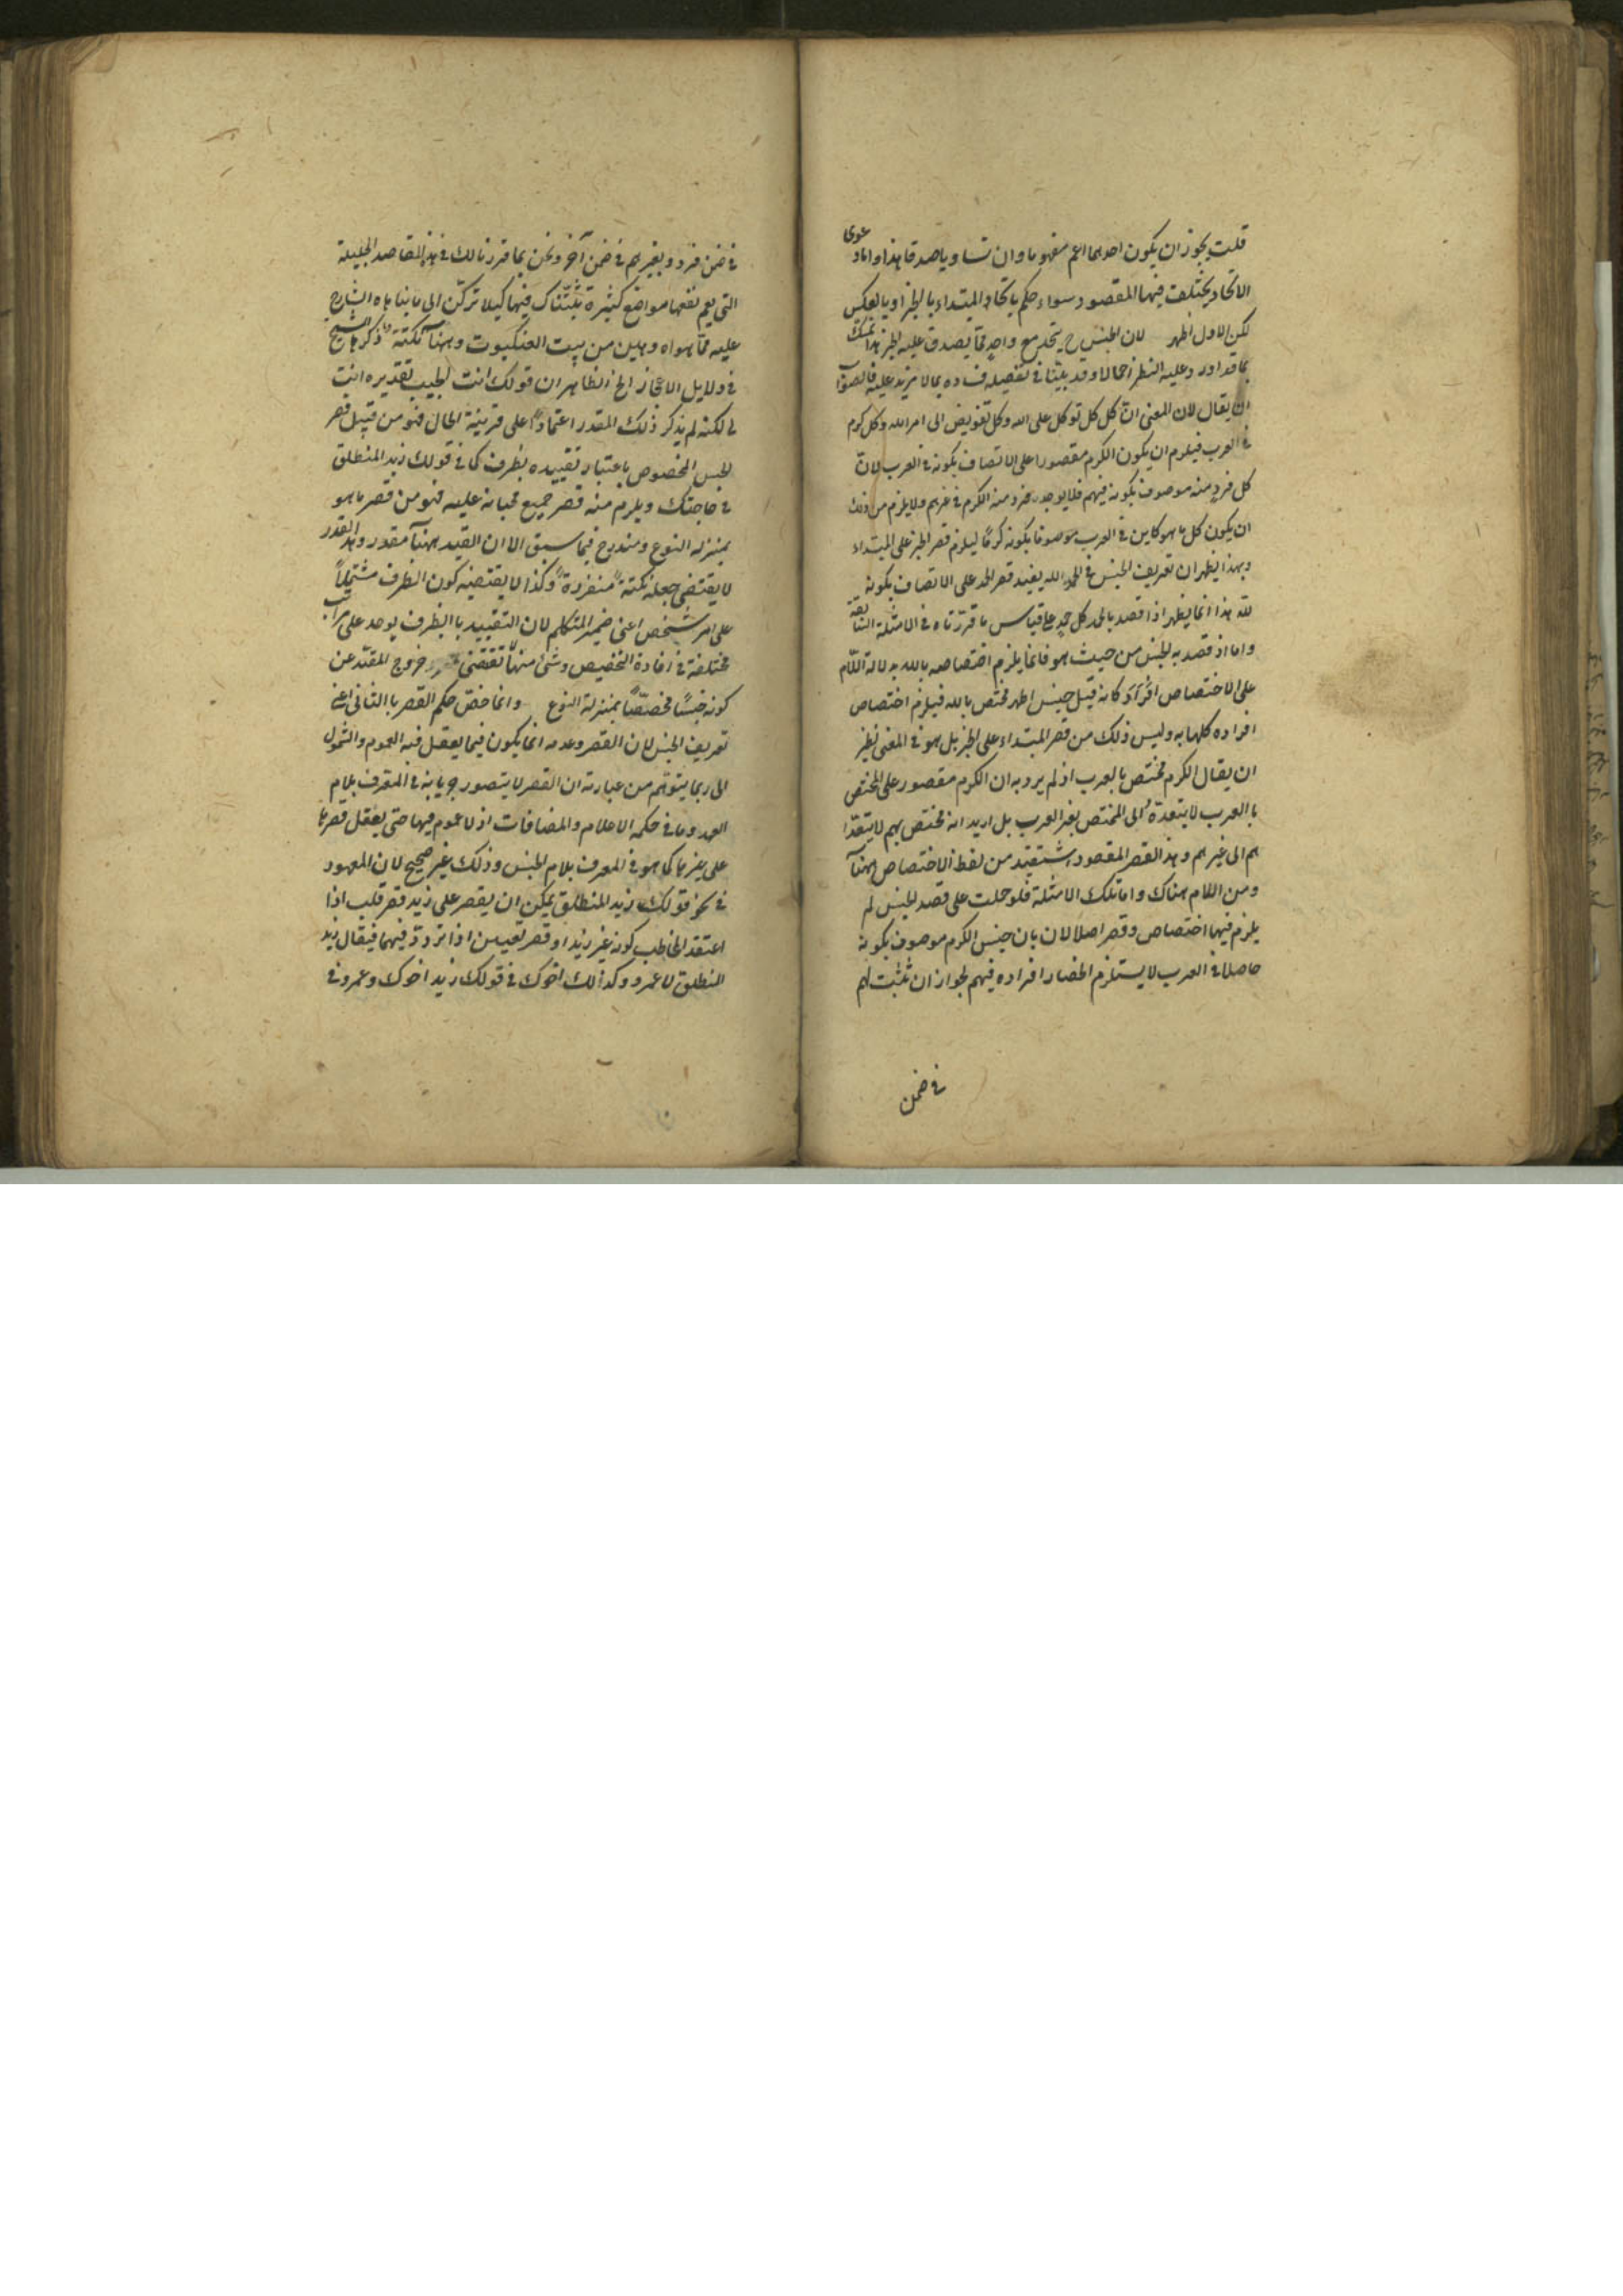 قلت يجوز ان يكون احدهما اعم مفهوما وان تساويا صدقا هذا واما دعوى
الاتحاد يختلف فيها المقصود سواء حكم باتحاد المبتداء بالخبر او بالعكس
لكن الاول اظهر لان الجنس ح يتحد مع واحد مما يصدق عليه الخبر هذا
بما قد اورد عليه النظر اجمالا وقد بيّنا في تفصيله فساده بما لا مزيد عليه فالصواب
ان يقال لان المعنى ان كل كل توكل على الله وكل تفويض الى امر الله وكل كرم
في العرب فيلزم ان يكون الكرم مقصورا على الاتصاف بكونه في العرب لان
كل فرد منه موصوف بكونه فيهم فلا يوجد فرد منه الكرم في غيرهم ولا يلزم من ذلك
ان يكون كل ما هو كاين في العرب موصوفا بكونه كرمًا ليلزم قصر الخبر على المبتداء
وبهذا يظهر ان تعريف الجنس في الحمد لله يفيد قصر الحمد على الاتصاف بكونه
لله هذا انما يظهر اذا قصد بالحمد كل حمد على قياس ما قررناه في الامثلة السابقة
واما اذ قصد به الجنس من حيث هو فانما يلزم اختصاصه بالله بدلالة اللام
على الاختصاص كانه قيل جنس الحمد مختص بالله فيلزم اختصاص
افراده كلها به وليس ذلك من قصر المبتداء على الخبر بل هو في المعنى نظير
ان يقال الكرم مختص بالعرب اذ لم يرد به ان الكرم مقصور على المختص
بالعرب لا يتعداه الى المختص بغير العرب بل اريد انه مختص بهم لا يتعدا
هم الى غيرهم وهذ القصر المقصود استفيد من لفظ الاختصاص ههنا
ومن اللام هناك واما تلك الامثلة فلو حملت على قصد الجنس لم
يلزم فيها اختصاص وقصر اصلا لان بان جنس الكرم موصوف بكونه
حاصلا في العرب لا يستلزم انحصار افراده فيهم لجواز ان تثبت لهم
في ضمن
في ضمن فرد وبغيرهم في ضمن آخر ونحن بما قررنا لك في هذه المقاصد الجليلة
التي يعم نفعها مواضع كثيرة ثبّتناك فيها كيلا تركن الى ما بناه الشارح
عليه مما هواه وهلين من بيت العنكبوت وههنا نكتة ذكرها الشيخ
في دلايل الاعجاز الخ الظاهر ان قولك انت الحبيب تقديره انت
لى لكنه لم يذكر ذلك المقدر اعتمادا على قرينة الحال فهو من قبيل قصر
الجنس المخصوص باعتبار تقييده بظرف كما في قولك زيد المنطلق
في حاجتك ويلزم منه قصر جميع محباته عليه فهو من قصر ما هو
بمنزله النوع ومندرج فيما سبق الا ان القيد ههنا مقدر وهذا القدر
لا يقتضي جعله نكتة منفردة وكذا لا يقتضيه كون الظرف مشتملاً
على امر شخص اعنى ضمير المتكلم لان التقييد بالظرف يوجد على مراتب
مختلفة في افادة التخصيص وشئ منها تقتضى خروج المقيد عن
كونه جنسًا مخصصًا بمنزلة النوع وانما خص حكم القصر بالثاني اعنى
تعريف الجنس لان القصر وعدمه انما يكون فيما يعقل فيه العموم والشمول
الى ربما يتوهم من عبارته ان القصر لا يتصور جريانه في المعرف بلام
العهد وما في حكمه الاعلام والمضافات اذ لا عموم فيها حتى يعقل قصرها
على غيرها كما هو في المعرف بلام الجنس وذلك غير صحيح لان المعهود
في نحو قولك زيد المنطلق يمكن ان يقصر على زيد قصر قلب اذا
اعتقد المخاطب كونه غير زيد او قصر تعيين اذا تردد فيهما فيقال زيد
المنطلق لا عمرو وكذلك اخوك في قولك زيد اخوك وعمرو في